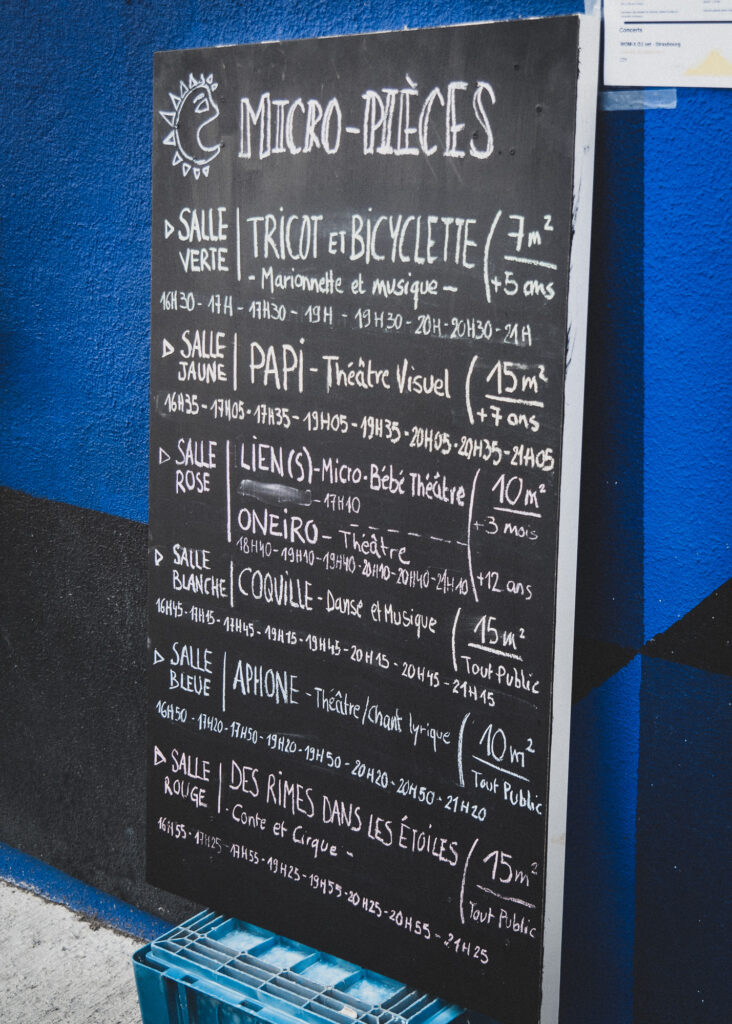 Concerts
MICRO-PIÈCES
▷ SALLE VERTE | TRICOT ET BICYCLETTE ( 7m²
- Marionnette et musique - +5 ans
16H30 - 17H - 17H30 - 19H - 19H30 - 20H - 20H30 - 21H
▷ SALLE JAUNE | PAPI - Théâtre Visuel ( 15m²
+7 ans
16H35 - 17H05 - 17H35 - 19H05 - 19H35 - 20H05 - 20H35 - 21H05
▷ SALLE ROSE | LIEN(S) - Micro-Bébé Théâtre ( 10m²
- 17H10 +3 mois
ONEIRO - Théâtre
18H40 - 19H10 - 19H40 - 20H10 - 20H40 - 21H10 +12 ans
▷ SALLE BLANCHE | COQVILLE - Danse et Musique ( 15m²
Tout Public
16H45 - 17H15 - 17H45 - 19H15 - 19H45 - 20H15 - 20H45 - 21H15
▷ SALLE BLEUE | APHONE - Théâtre/Chant lyrique ( 10m²
Tout Public
16H50 - 17H20 - 17H50 - 19H20 - 19H50 - 20H20 - 20H50 - 21H20
▷ SALLE ROUGE | DES RIMES DANS LES ÉTOILES ( 15m²
- Conte et Cirque - Tout Public
16H55 - 17H25 - 17H55 - 19H25 - 19H55 - 20H25 - 20H55 - 21H25